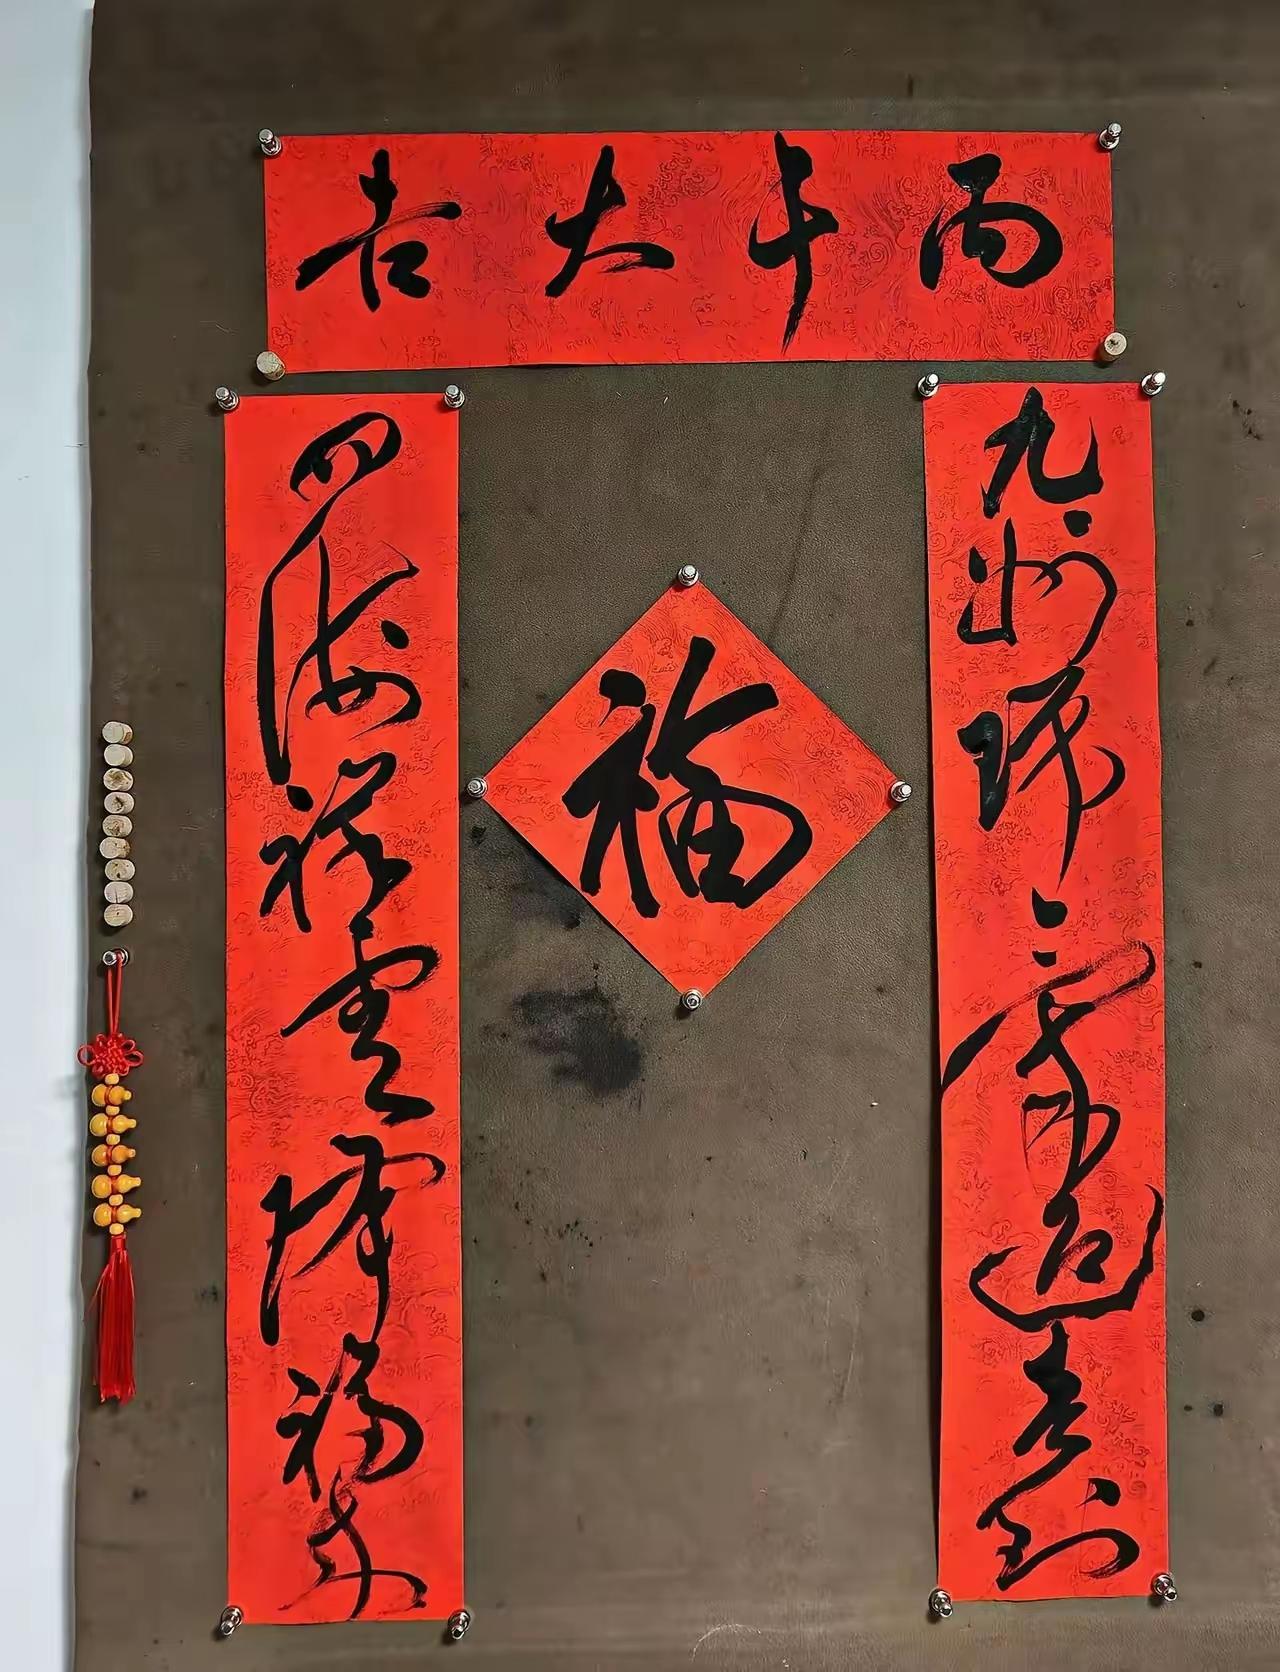 丙午大吉
九州瑞氣迎春到
四海祥雲降福来
福